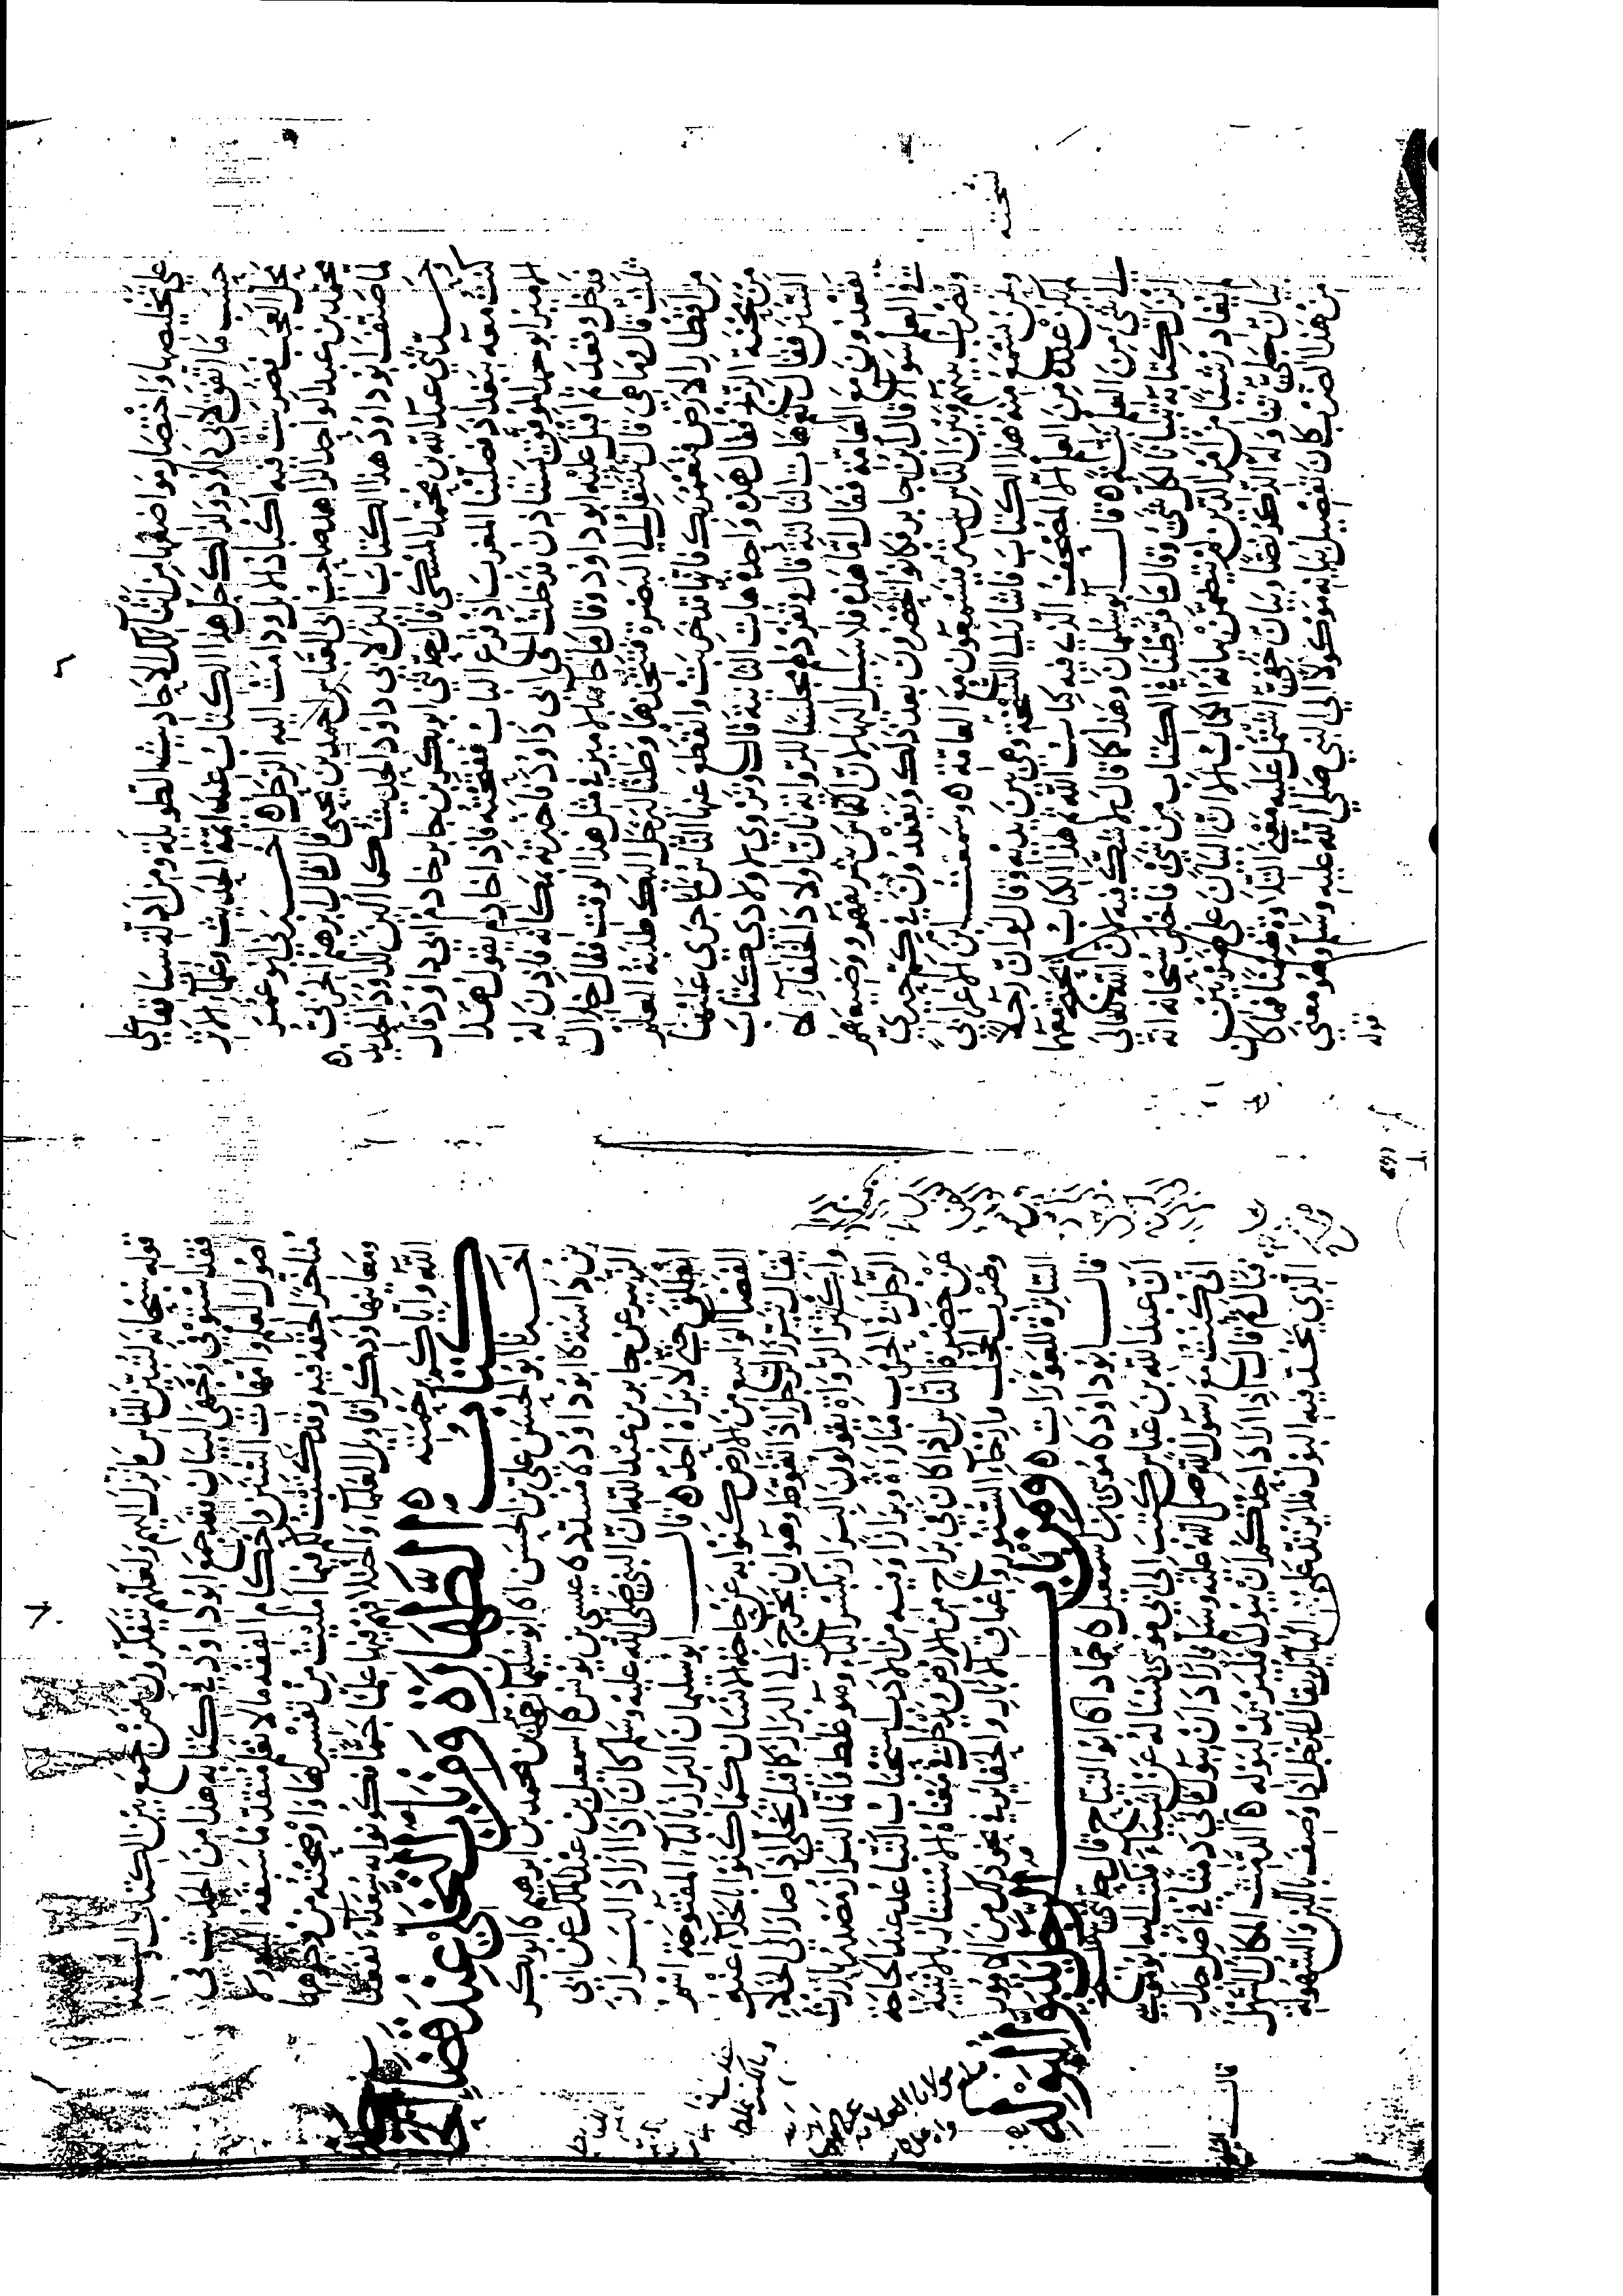 ٦
على تخليصها واختصار مواضعها من اثناء تلك الاحاديث الطويلة ومن ادلة سياقها على
حسب ما اتفق لابي داود ولذلك حل هذا الكتاب عند ائمة الحديث وعلماء الاثر
محل العجب فضربت فيه اكباد الابل ودامت اليه الرحل ه اخبرني ابو عمر
محمد بن عبد الواحد الزاهد صاحب ابي العباس احمد بن يحيى قال قال ابرهيم الحربي
لما صنف ابو داود هذا الكتاب الين لابي داود الحديث كما الين لداود الحديد ه
وحدثني عبد الله بن محمد المسكي قال حدثني ابو بكر بن جابر خادم ابي داود قال
كنت معه ببغداد فصلينا المغرب اذ قرع الباب ففتحته فاذا خادم يقول هذا
الامير ابو احمد الموفق يستاذن فدخلت الى ابي داود فاخبرته بمكانه فاذن له
فدخل وقعد ثم اقبل عليه ابو داود وقال ما جاء بالامير في مثل هذا الوقت فقال خلال
ثلث قال وما هي قال تنتقل الى البصرة فتتخذها وطنا ليرحل اليك طلبة العلم
من اقطار الارض فتعمر بك فانها قد خربت وانقطع عنها الناس لما جرى عليها
من محنة الزنج فقال هذه واحدة هات الثانية قال وتروي لاولادي كتاب
السنن فقال نعم هات الثالثة قال وتفرد لهم مجلسا للرواية فان اولاد الخلفاء لا
يقعدون مع العامة فقال اما هذه فلا سبيل اليها لان الناس شريفهم ووضيعهم
في العلم سواء قال ابن جابر فكانوا يحضرون بعد ذلك ويقعدون في كم حيري
ويضرب بينهم وبين الناس ستر فيسمعون مع العامة ه وسمعت ابن الاعرابي
ونحن نسمع منه هذا الكتاب فاشار الى النسخة وهي بين يديه وقال لو ان رجلا
نسخته
لم يكن عنده من العلم الا المصحف الذي فيه كتاب الله ثم هذا الكتاب لم يحتج معهما
الى شيء من العلم بتة ه قال ابو سليمان وهذا كما قال لا شك فيه لان الله تعالى
انزل كتابه تبيانا لكل شيء وقال ما فرطنا في الكتاب من شيء فاخبر سبحانه انه
لم يغادر شيئا من امر الدين لم يتضمن بيانه الكتاب الا ان البيان على ضربين
بيان جلي تناوله الذكر نصا وبيان خفي اشتمل عليه معنى التلاوة ضمنا فما كان
من هذا الضرب كان تفصيل بيانه موكولا الى النبي صلى الله عليه وسلم وهو معنى
قوله
٧
قوله سبحانه لتبين للناس ما نزل اليهم ولعلهم يتفكرون فمن جمع بين الكتاب والسنة
فقد استوفى وجهي البيان وقد جمع ابو داود في كتابه هذا من الحديث في
اصول العلم وامهات السنن واحكام الفقه ما لا نعلم متقدما سبقه اليه ولا
متاخرا لحقه فيه وقد كتبت لكم فيما امليت من تفسيرها واوضحته من وجوهها
ومعانيها وذكر اقاويل العلماء واختلافهم فيها علما جما فكونوا به سعداء نفعنا
الله واياكم برحمته ه
كتاب الطهارة ومن باب التخلي عند قضاء الحاجة
اخبرنا ابو الحسن علي بن الحسن انا ابو سليمان حمد بن محمد بن ابرهيم نا ابو بكر
بن داسة نا ابو داود نا مسدد نا عيسى بن يونس نا اسمعيل بن عبد الملك عن ابي
الزبير عن جابر بن عبد الله ان النبي صلى الله عليه وسلم كان اذا اراد البراز
انطلق حتى لا يراه احد ه قال ابو سليمان البراز بالباء المفتوحة اسم
للفضاء الواسع من الارض كنوا به عن حاجة الانسان كما كنوا بالخلاء عنه
يقال تبرز الرجل اذا تغوط وهو ان يخرج الى البراز كما قيل تخلى اذا صار الى الخلاء
واكثر الرواة يقولون البراز بكسر الباء وهو غلط فانما البراز مصدر بارزت
الرجل في الحرب مبارزة وبرازا وفيه من الادب استحباب التباعد عند الحاجة
عن حضرة الناس اذا كان في براح من الارض ويدخل في معناه الاستتار بالابنية
وضرب الحجب وارخاء الستور واعماق الآبار والحفائر في نحو ذلك من الامور
الساترة للعورات ه ومن باب الرجل يتبوأ لبوله
قال ابو داود نا موسى بن اسمعيل نا حماد انا ابو التياح قال حدثني شيخ
ان عبد الله بن عباس كتب الى ابي موسى يساله عن اشياء فكتب اليه ابو موسى
اني كنت مع رسول الله صلى الله عليه وسلم فاراد ان يبول فاتى دمثا في اصل جدار
فبال ثم قال اذا اراد احدكم ان يبول فليرتد لبوله ه الدمث المكان السهل
الذي يخد فيه البول فلا يرتد على البائل يقال للرجل اذا وصف باللين والسهولة